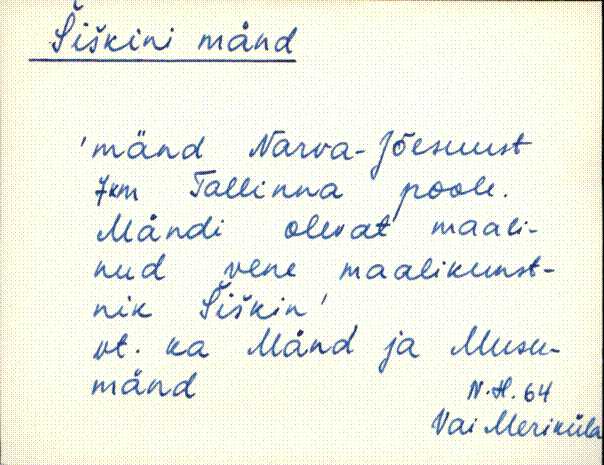 Šiškini mänd
'mänd Narva-Jõesuust
7km Tallinna poole.
Mändi olevat maali-
nud vene maalikunst-
nik Šiškin'
vt. ka Mänd ja Musu-
mänd
N.H. 64
Vai Meriküla